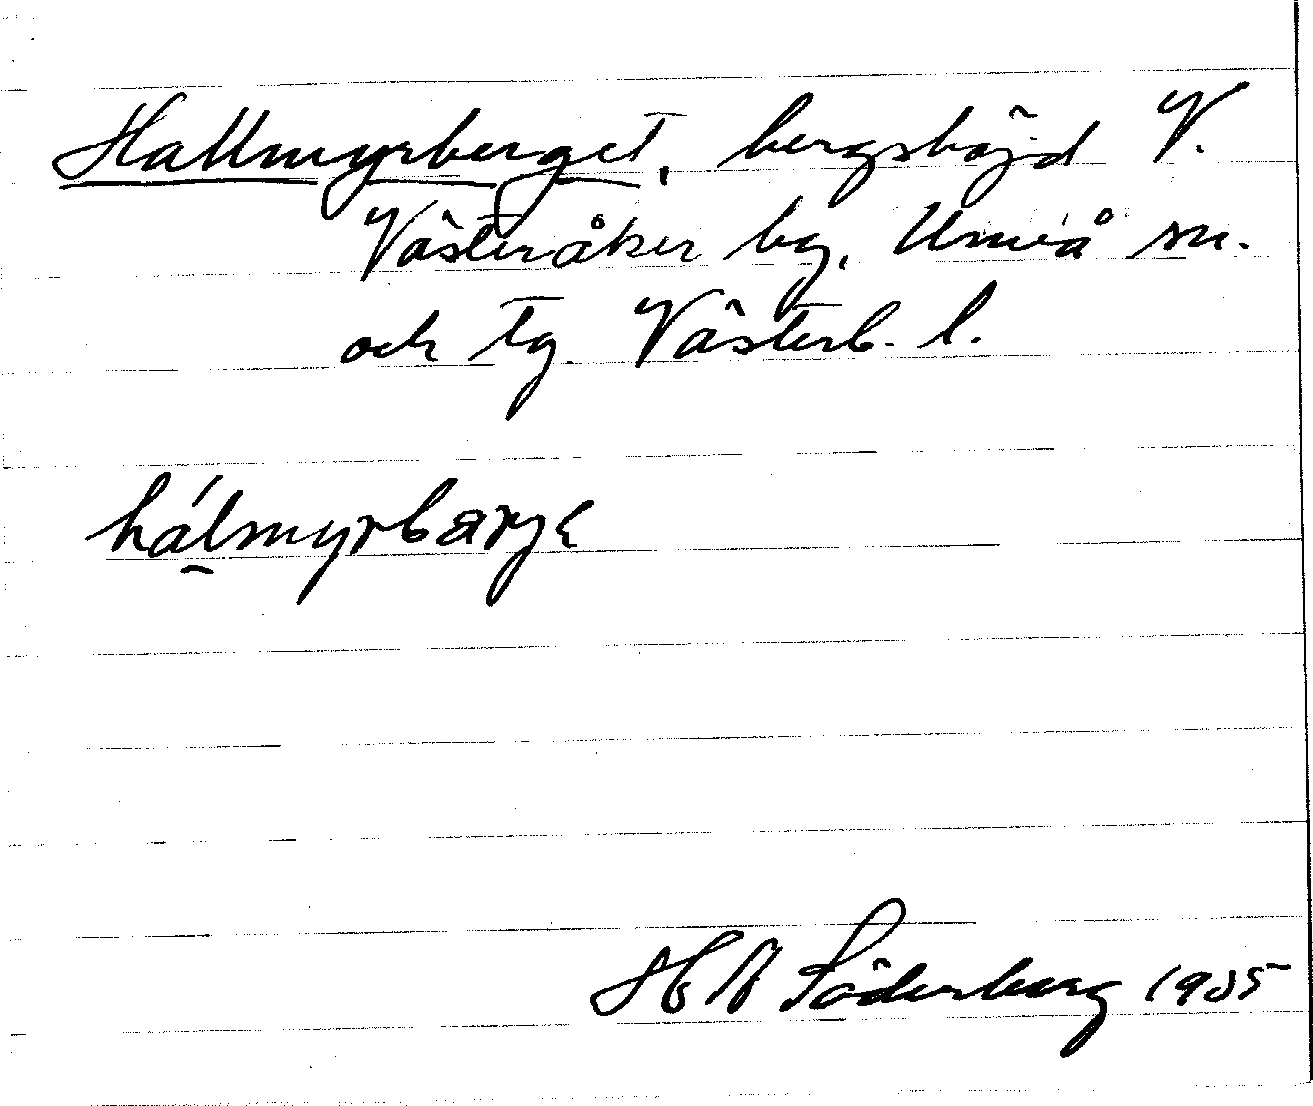 Hallmyrberget, bergshöjd V.
Västeråker by, Umeå sn.
och tg. Västerb. l.
hálmyrbærjɛ
H A Söderberg 1935